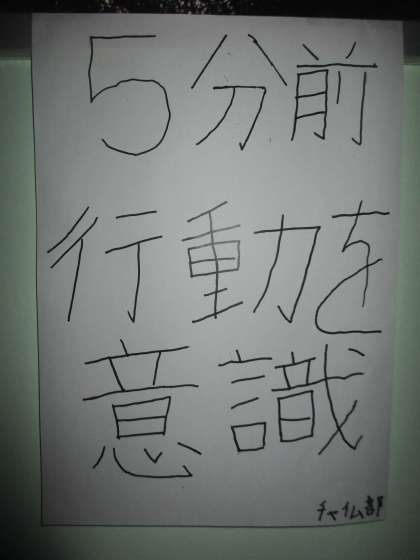 5分前
行動を
意識
チャイム部